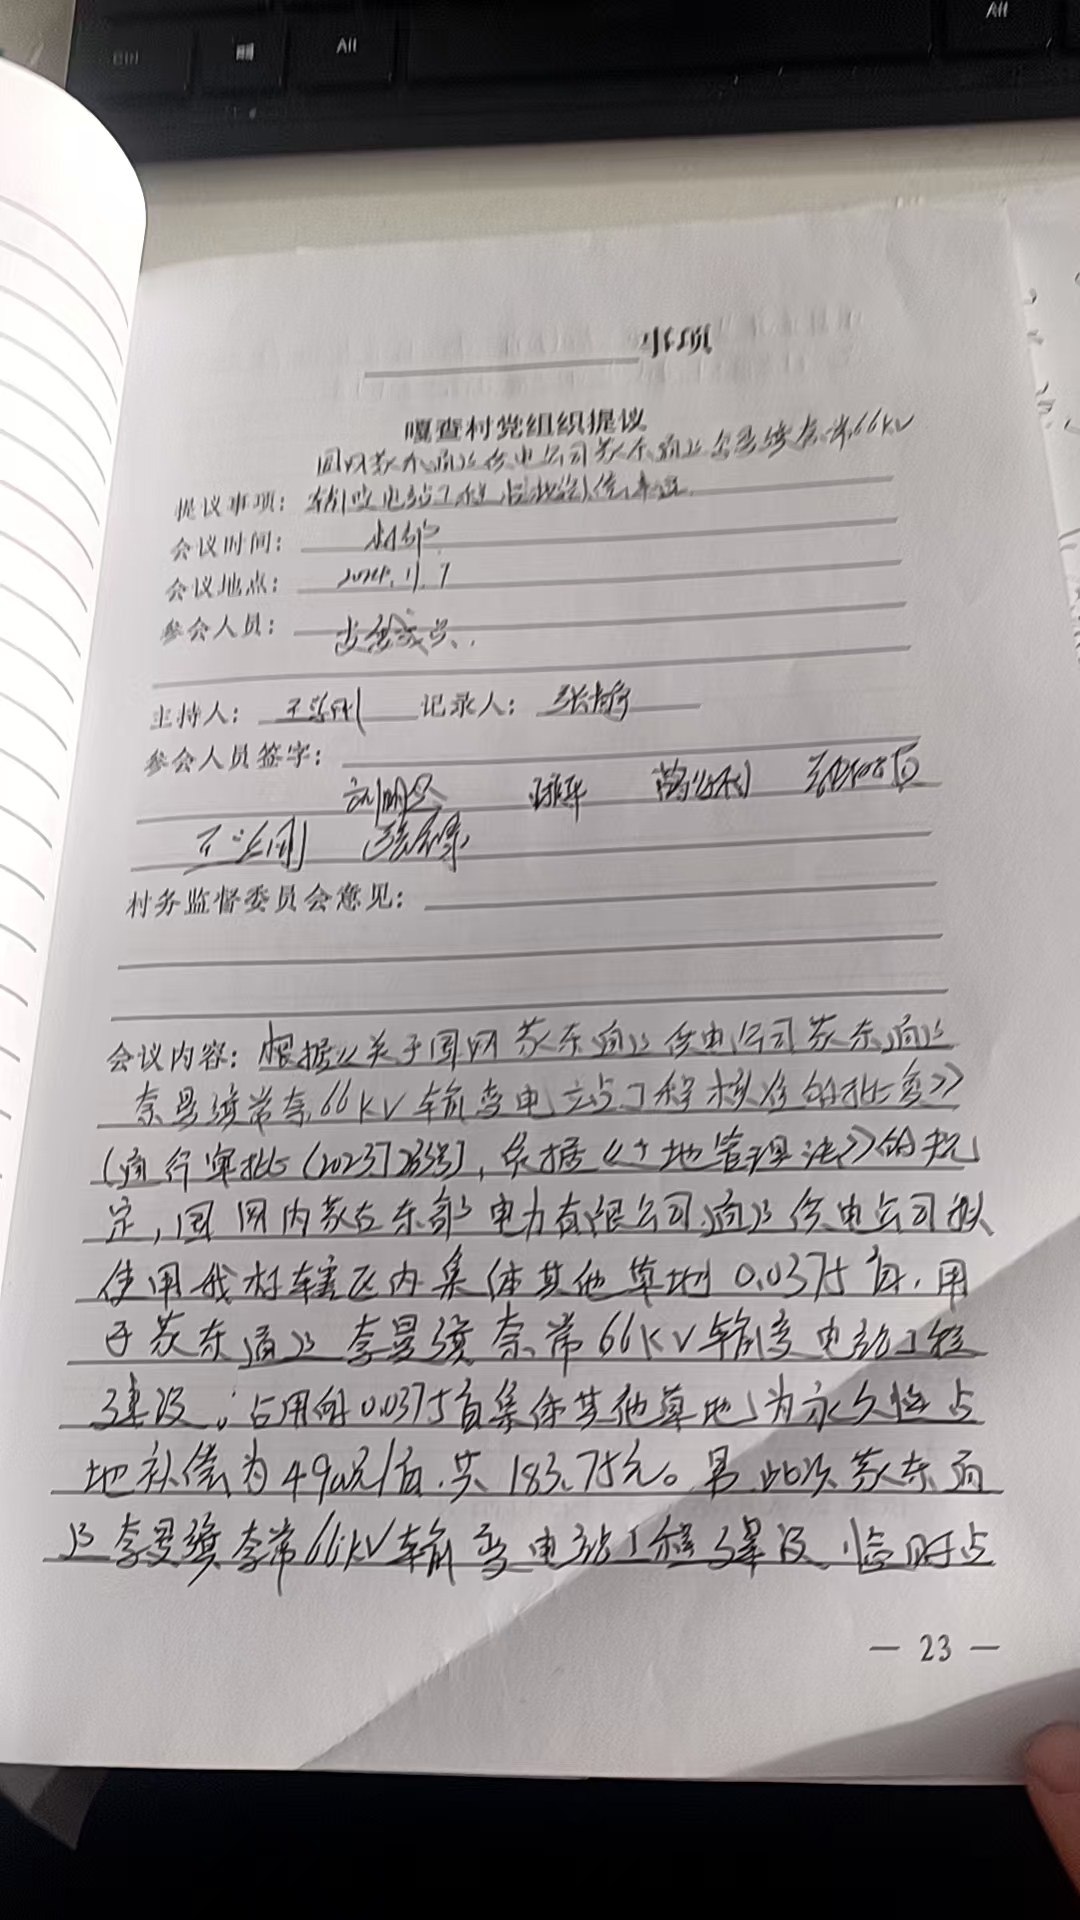 Ctrl
Alt
Alt
事项
嘎查村党组织提议
国网蒙东通辽供电公司蒙东通辽奈曼旗奈常66kV
提议事项：输变电站工程占地
会议时间：村部
会议地点：2024.11.7
参会人员：
主持人： 记录人：
参会人员签字：
村务监督委员会意见：
会议内容：根据《关于国网蒙东通辽供电公司蒙东通辽
奈曼旗常奈66kV输变电站工程核准的批复》
(通行审批[2023] 号)，依据《土地管理法》的规
定，国网内蒙古东部电力有限公司通辽供电公司拟
使用我村辖区内集体其他草地0.0375亩，用
于蒙东通辽奈曼旗奈常66kV输变电站工程
建设。占用的0.0375亩集体其他草地，为永久性占
地补偿为4900元/亩，共183.75元。另此次蒙东通
辽奈曼旗奈常66kV输变电站工程建设，临时占
— 23 —